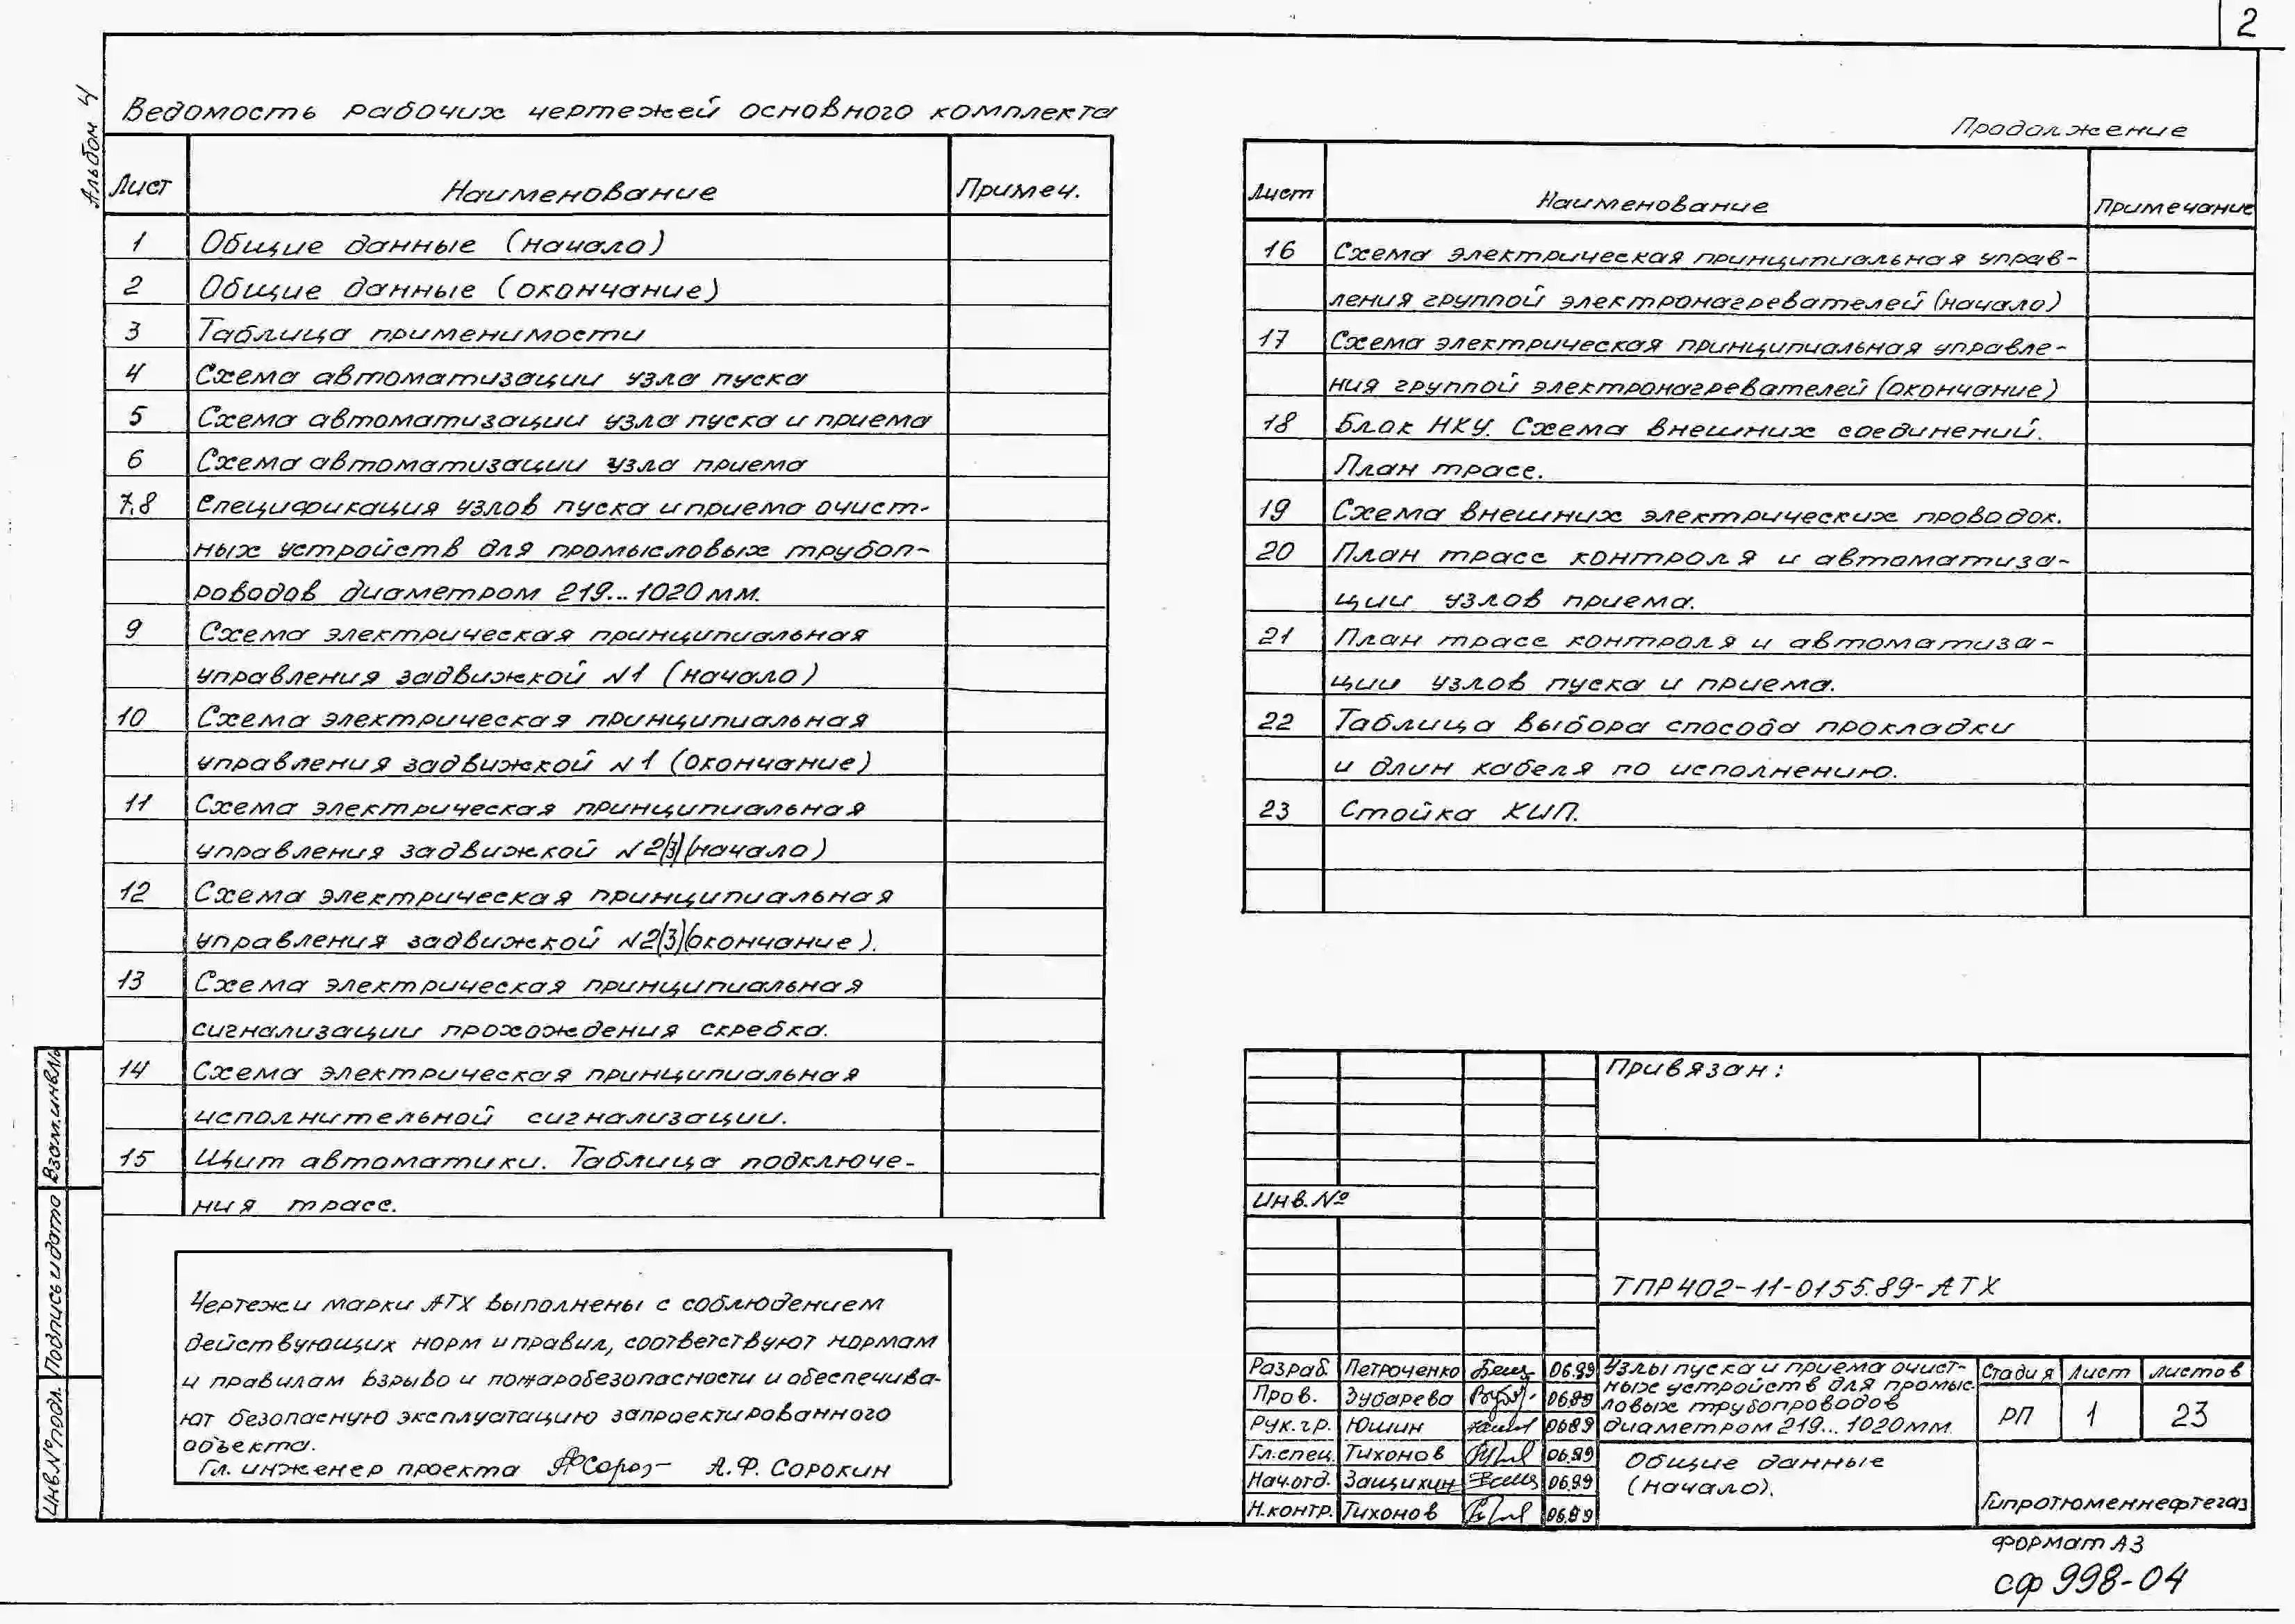 2
Альбом 4
Ведомость рабочих чертежей основного комплекта
Лист Наименование Примеч.
1 Общие данные (начало)
2 Общие данные (окончание)
3 Таблица применимости
4 Схема автоматизации узла пуска
5 Схема автоматизации узла пуска и приема
6 Схема автоматизации узла приема
7,8 Спецификация узлов пуска и приема очист-
ных устройств для промысловых трубоп-
роводов диаметром 219...1020 мм.
9 Схема электрическая принципиальная
управления задвижкой N1 (начало)
10 Схема электрическая принципиальная
управления задвижкой N1 (окончание)
11 Схема электрическая принципиальная
управления задвижкой N2(3)(начало)
12 Схема электрическая принципиальная
управления задвижкой N2(3)(окончание).
13 Схема электрическая принципиальная
сигнализации прохождения скребка.
14 Схема электрическая принципиальная
исполнительной сигнализации.
15 Щит автоматики. Таблица подключе-
ния трасс.
Продолжение
Лист Наименование Примечание
16 Схема электрическая принципиальная управ-
ления группой электронагревателей (начало)
17 Схема электрическая принципиальная управле-
ния группой электронагревателей (окончание)
18 Блок НКУ. Схема внешних соединений.
План трасс.
19 Схема внешних электрических проводок.
20 План трасс контроля и автоматиза-
ции узлов приема.
21 План трасс контроля и автоматиза-
ции узлов пуска и приема.
22 Таблица выбора способа прокладки
и длин кабеля по исполнению.
23 Стойка КИП.
Чертежи марки АТХ выполнены с соблюдением
действующих норм и правил, соответствуют нормам
и правилам взрыво и пожаробезопасности и обеспечива-
ют безопасную эксплуатацию запроектированного
объекта.
Гл. инженер проекта А.Ф. Сорокин
Взам.инв.№
Подпись и дата
Инв.№ подл.
Привязан:
Инв.№
ТПР 402-11-0155.89-АТХ
Разраб. Петроченко 06.89
Пров. Зубарева 06.89
Рук.гр. Юшин 06.89
Гл.спец. Тихонов 06.89
Нач.отд. Защихин 06.89
Н.контр. Тихонов 06.89
Узлы пуска и приема очист-
ных устройств для промыс-
ловых трубопроводов
диаметром 219...1020мм.
Стадия Лист Листов
РП 1 23
Общие данные
(начало).
Гипротюменнефтегаз
Формат А3
СФ 998-04